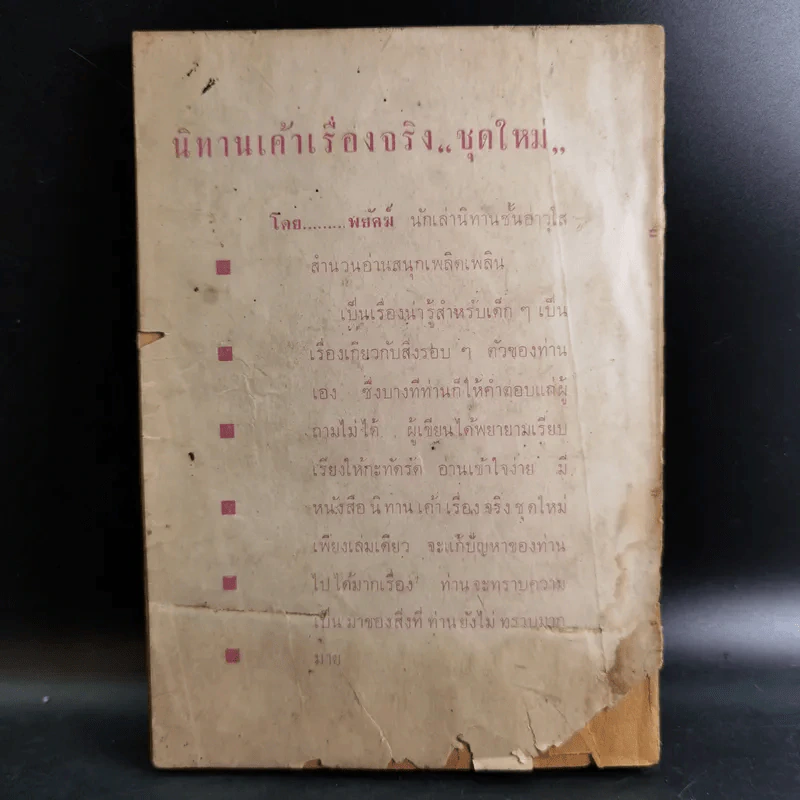 นิทานเค้าเรื่องจริง „ชุดใหม่„
โดย......... พยัคฆ์ นักเล่านิทานชั้นอาวุโส
สำนวนอ่านสนุกเพลิดเพลิน
เป็นเรื่องน่ารู้สำหรับเด็ก ๆ เป็น
เรื่องเกี่ยวกับสิ่งรอบ ๆ ตัวของท่าน
เอง ซึ่งบางทีท่านก็ให้คำตอบแก่ผู้
ถามไม่ได้ ผู้เขียนได้พยายามเรียบ
เรียงให้กะทัดรัด อ่านเข้าใจง่าย มี
หนังสือ นิทานเค้าเรื่องจริงชุดใหม่
เพียงเล่มเดียว จะแก้ปัญหาของท่าน
ไปได้มากเรื่อง ท่านจะทราบความ
เป็นมาของสิ่งที่ท่านยังไม่ทราบมาก
มาย